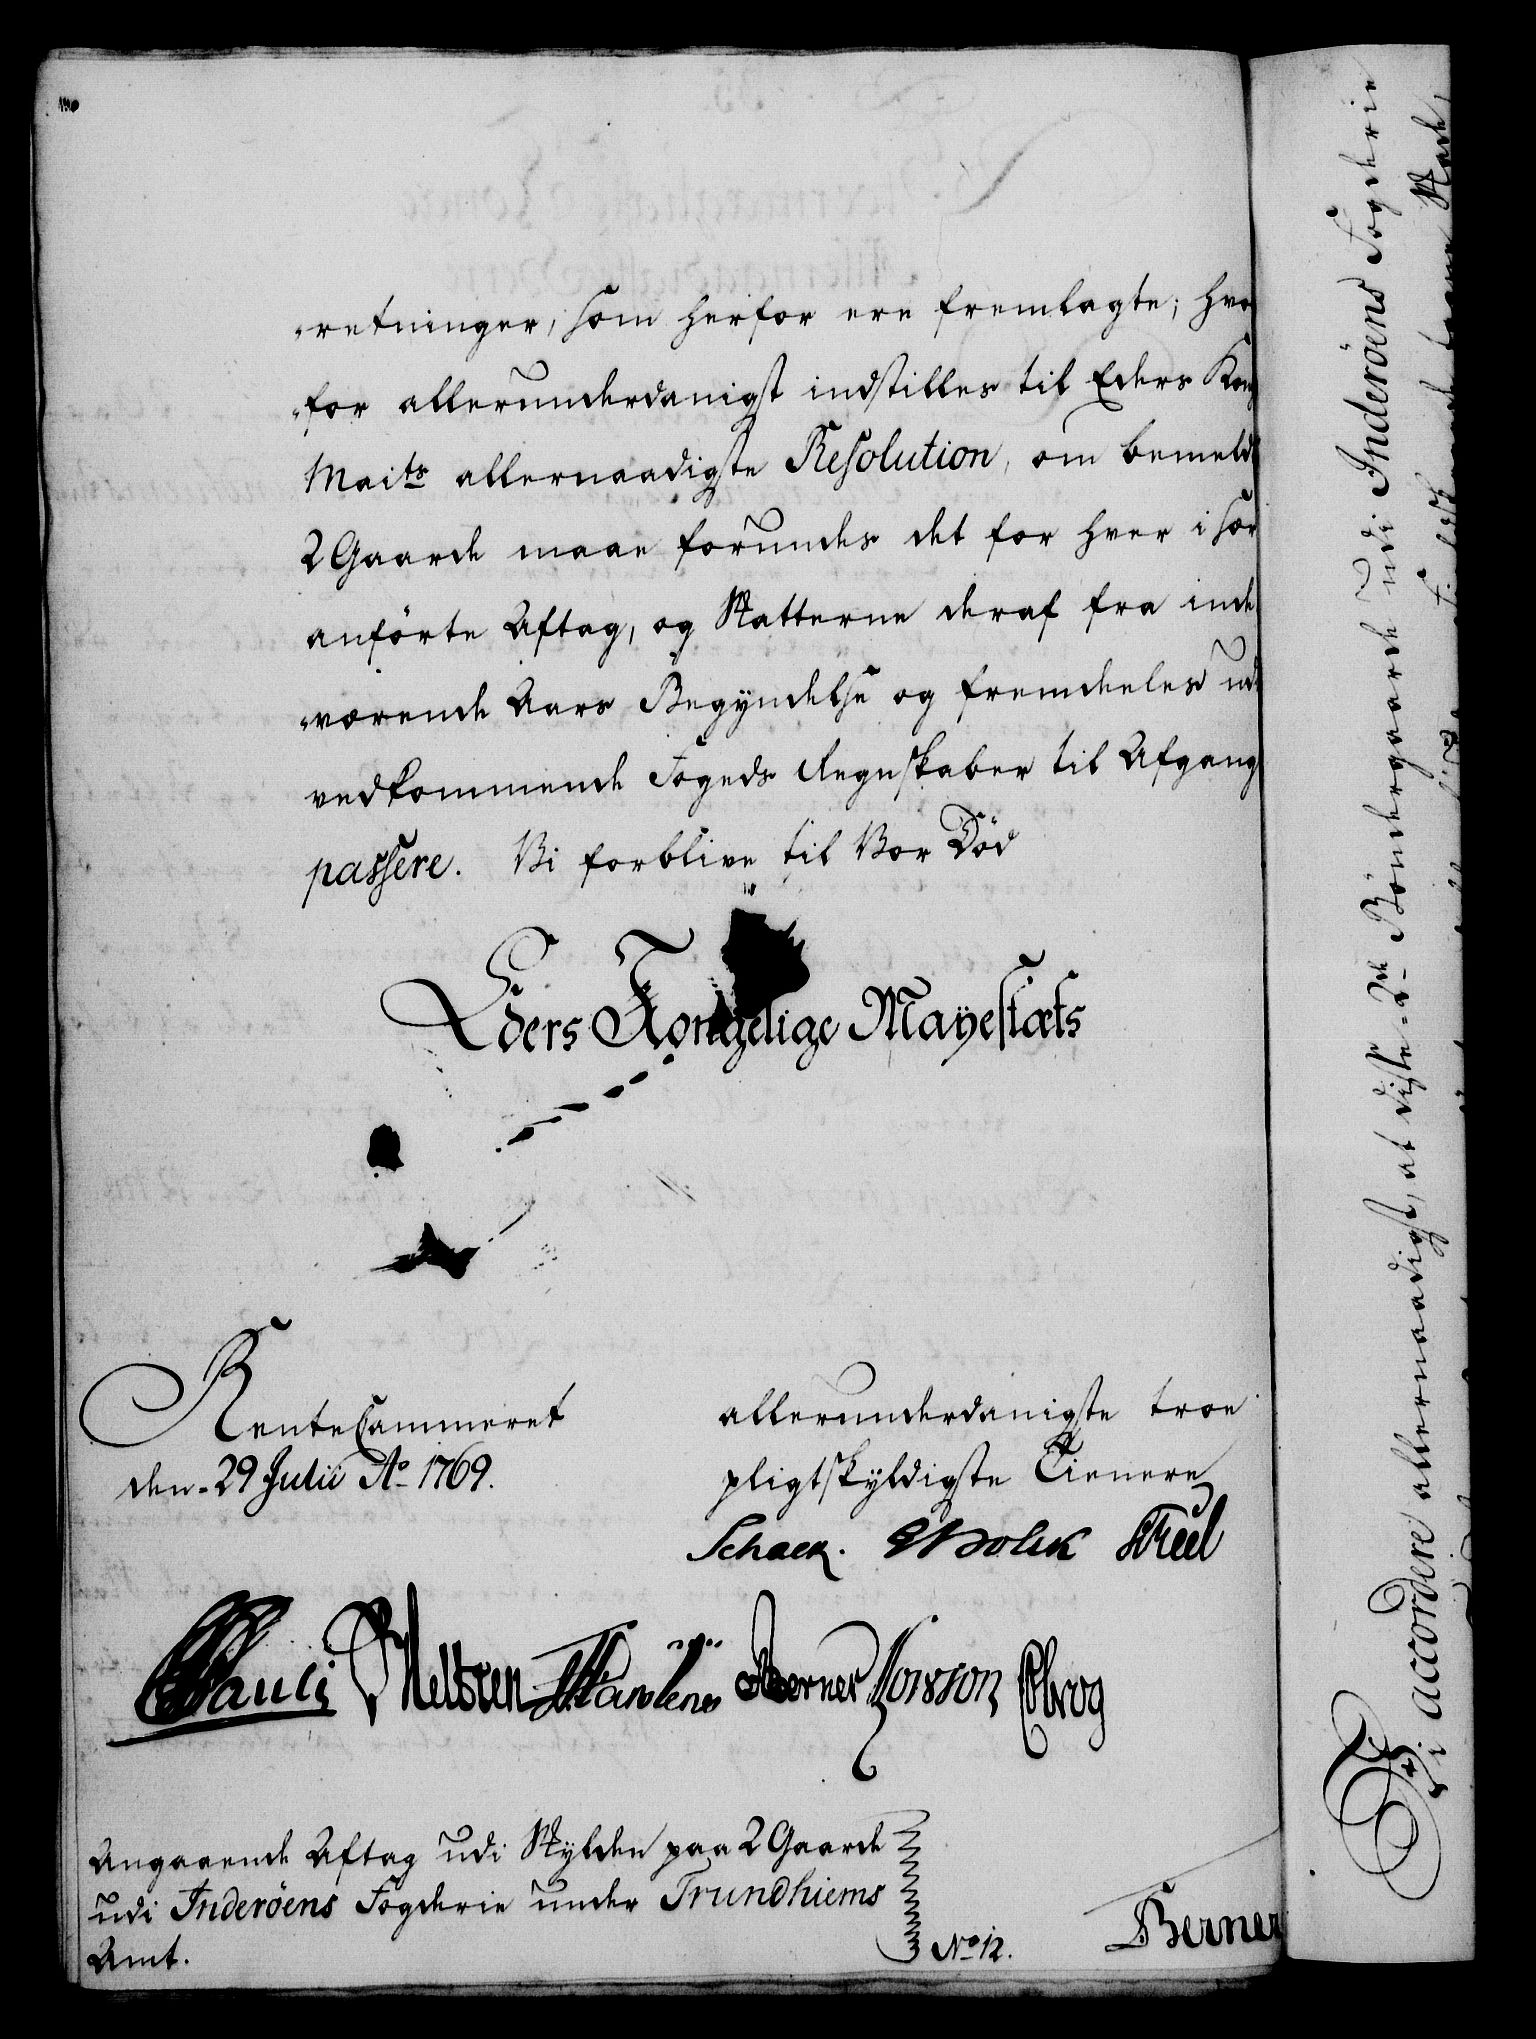 -retninger, som herfor ere fremlagte; hvo
-for allerunderdanigst indstilles til Eders Kong
Maits allernaadigste Resolution, om bemeldt
2 Gaarde maae forundes det for hver i sær
anförte Aftag, og Skatterne deraf fra inde
-værende Aars Begÿndelse og fremdeeles udi
vedkommende Fogeds Regnskaber til Afgang
passere. Vi forblive til Vor Död
Eders Kongelige Mayestæts
RenteCammeret
den 29 Julii Ao 1769.
allerunderdanigste troe
pligtskÿldigste Tienere
Schack.
Pauli
Berner
Angaaende Aftag udi Skÿlden paa 2 Gaarde
udi Inderöens Fogderie under Trundhiems
Amt.
No 12.
Berner
Vi accordere allernaadigst, at disse 2de Böndergaarde udi Inderöens Fogderie